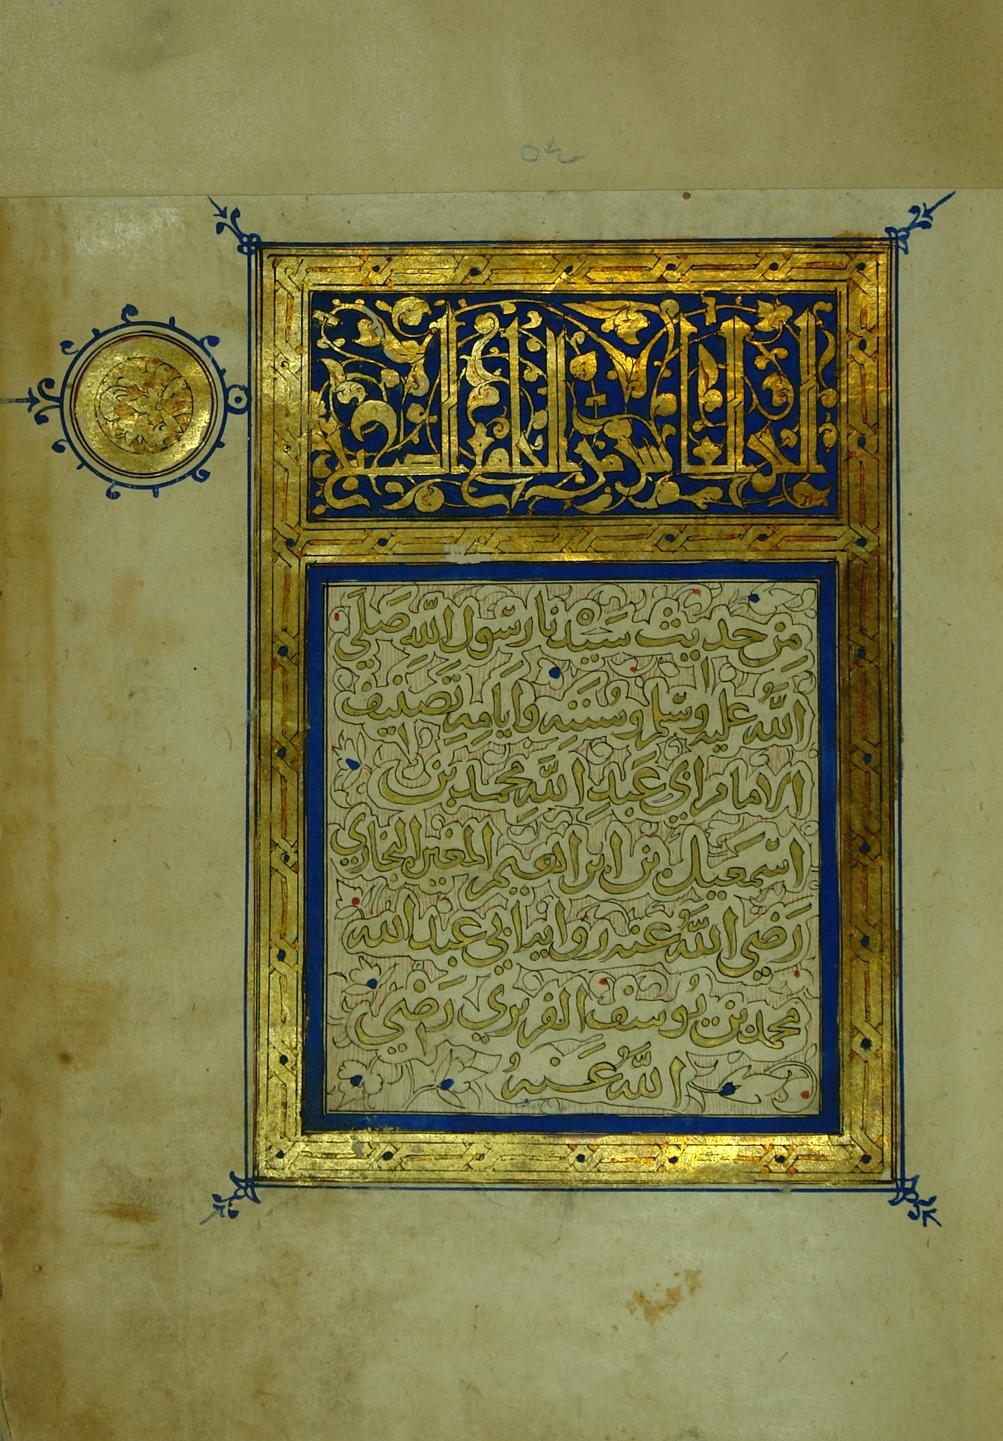 الجزء الخامس من الجامع الصحيح
مِنْ حديث سَيّدنا رسُول الله صَلي
الله عليه وسلم وسُننه وايامه تصنيف
الامام ابي عَبد الله محمد بن
اسمعيل بن ابرهيم بن المغيره البخاري
رَضي الله عنه رواية ابي عبد الله
محمد بن يُوسف الفربري رضي
الله عَنهُ